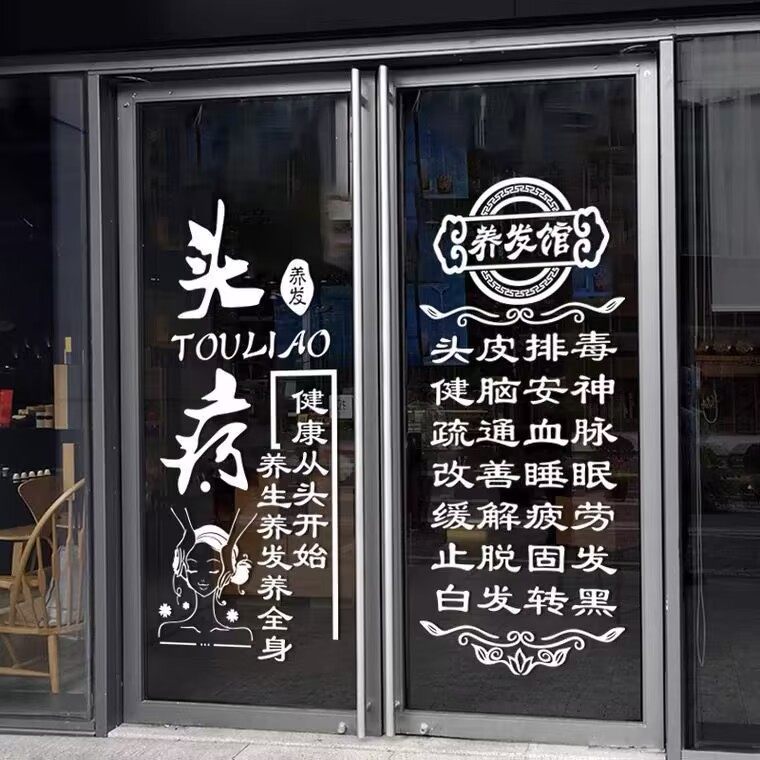 头疗
养发
TOULIAO
健康从头开始
养生养发养全身
养发馆
头皮排毒
健脑安神
疏通血脉
改善睡眠
缓解疲劳
止脱固发
白发转黑